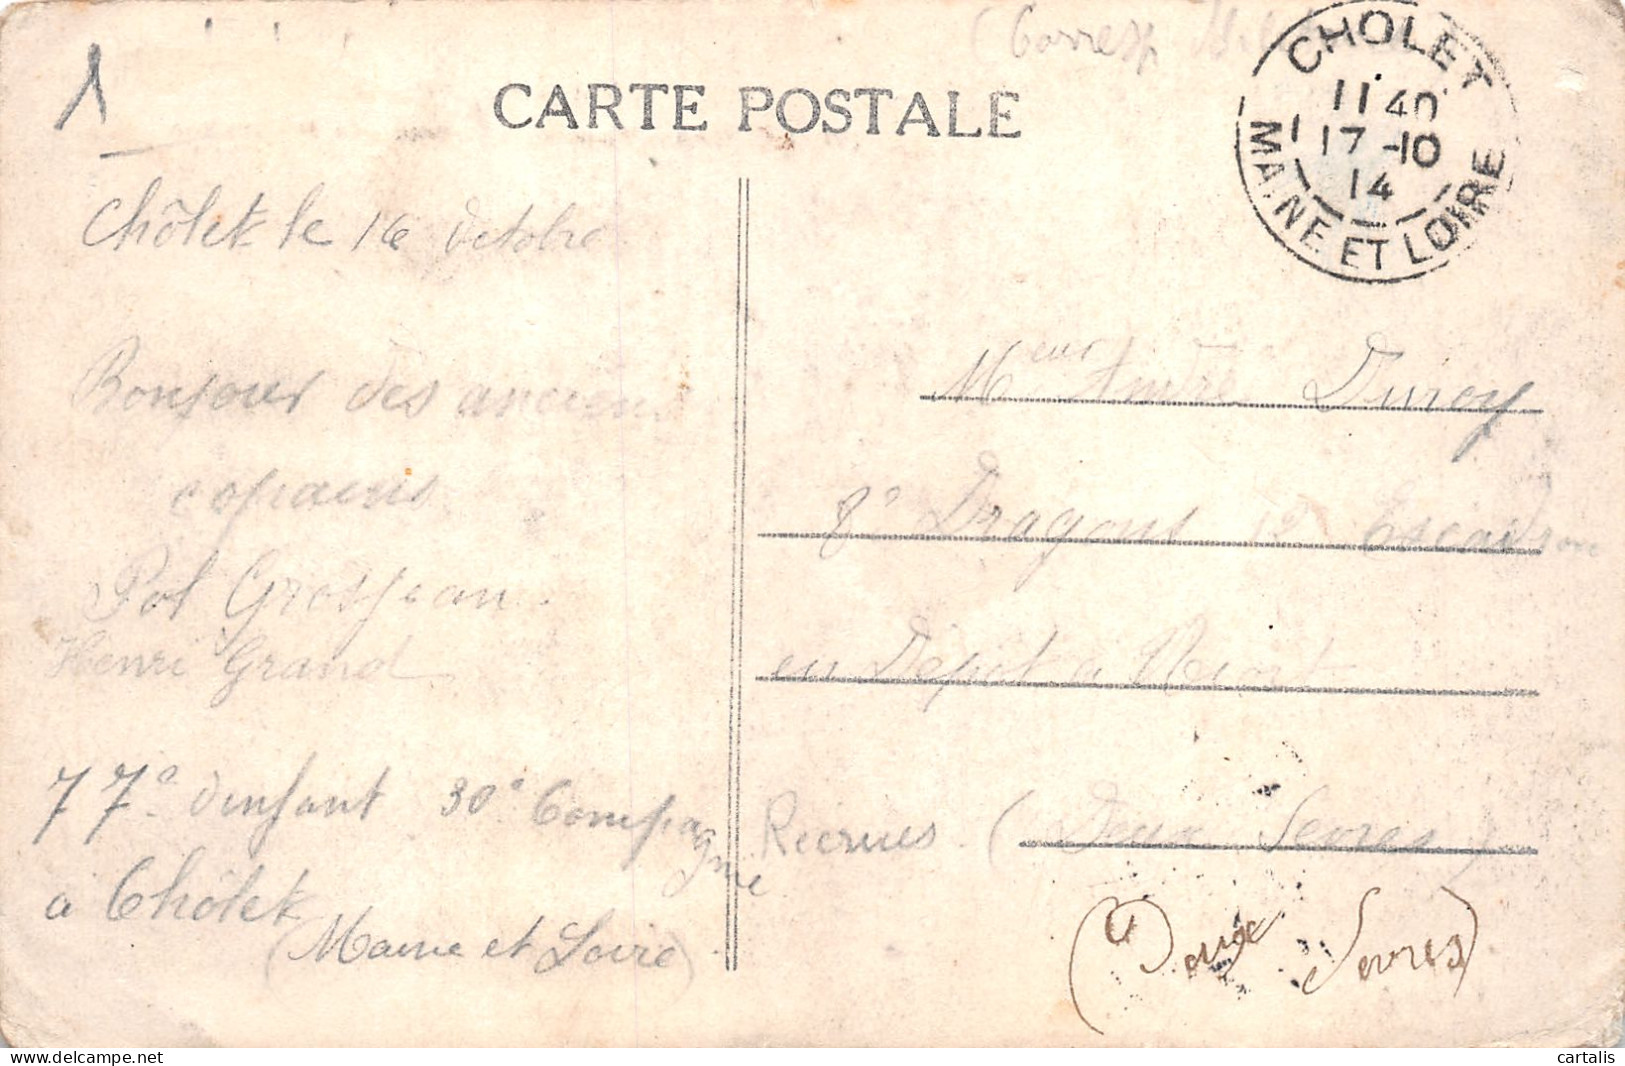 1
CARTE POSTALE
CHOLET
11 40
17 -10
14
MAINE ET LOIRE
Chôlet le 16 Octobre
Bonjour des anciens
copains
Pol Grosjean.
Henri Grand
77e d'infant 30e Compagnie
à Chôlet
(Maine et Loire)
Meur André Duroy
8e Dragons 12 Escadron
en Dépôt à Niort
Recrues. (Deux Sevres)
(Deux Sevres)
cartalis